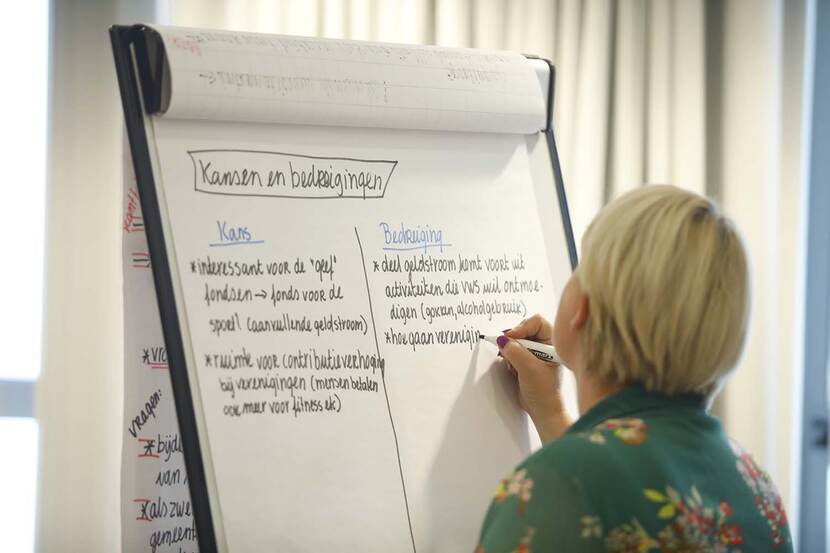 Kansen en bedreigingen
Kans
*interessant voor de "geef"
fondsen → fonds voor de
sport! (aanvullende geldstroom)
*ruimte voor contributieverhoging
bij verenigingen (mensen betalen
ook meer voor fitness etc)
Bedreiging
*deel geldstroom komt voort uit
activiteiten die VWS wil ontmoe-
digen (gokken, alcoholgebruik)
*hoe gaan verenigin
vragen:
*bijd
van
*als zwe
gemeent